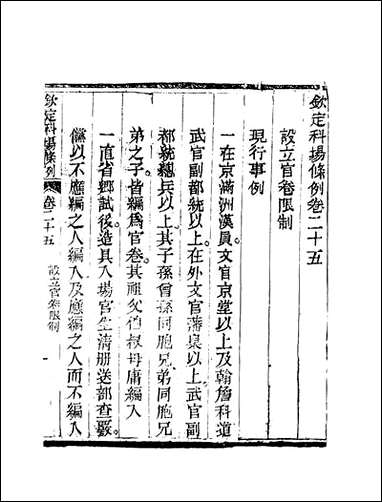 欽定科場條例卷二十五
設立官卷限制
現行事例
一在京滿洲漢員文官京堂以上及翰詹科道
武官副都統以上在外文官藩臬以上武官副
都統總兵以上其子孫曾孫同胞兄弟同胞兄
弟之子皆編爲官卷其祖父伯叔毋庸編入
一直省鄉試後造具入場官生清册送部查覈
儻以不應編之人編入及應編之人而不編入
欽定科場條例
卷二十五
設立官卷限制